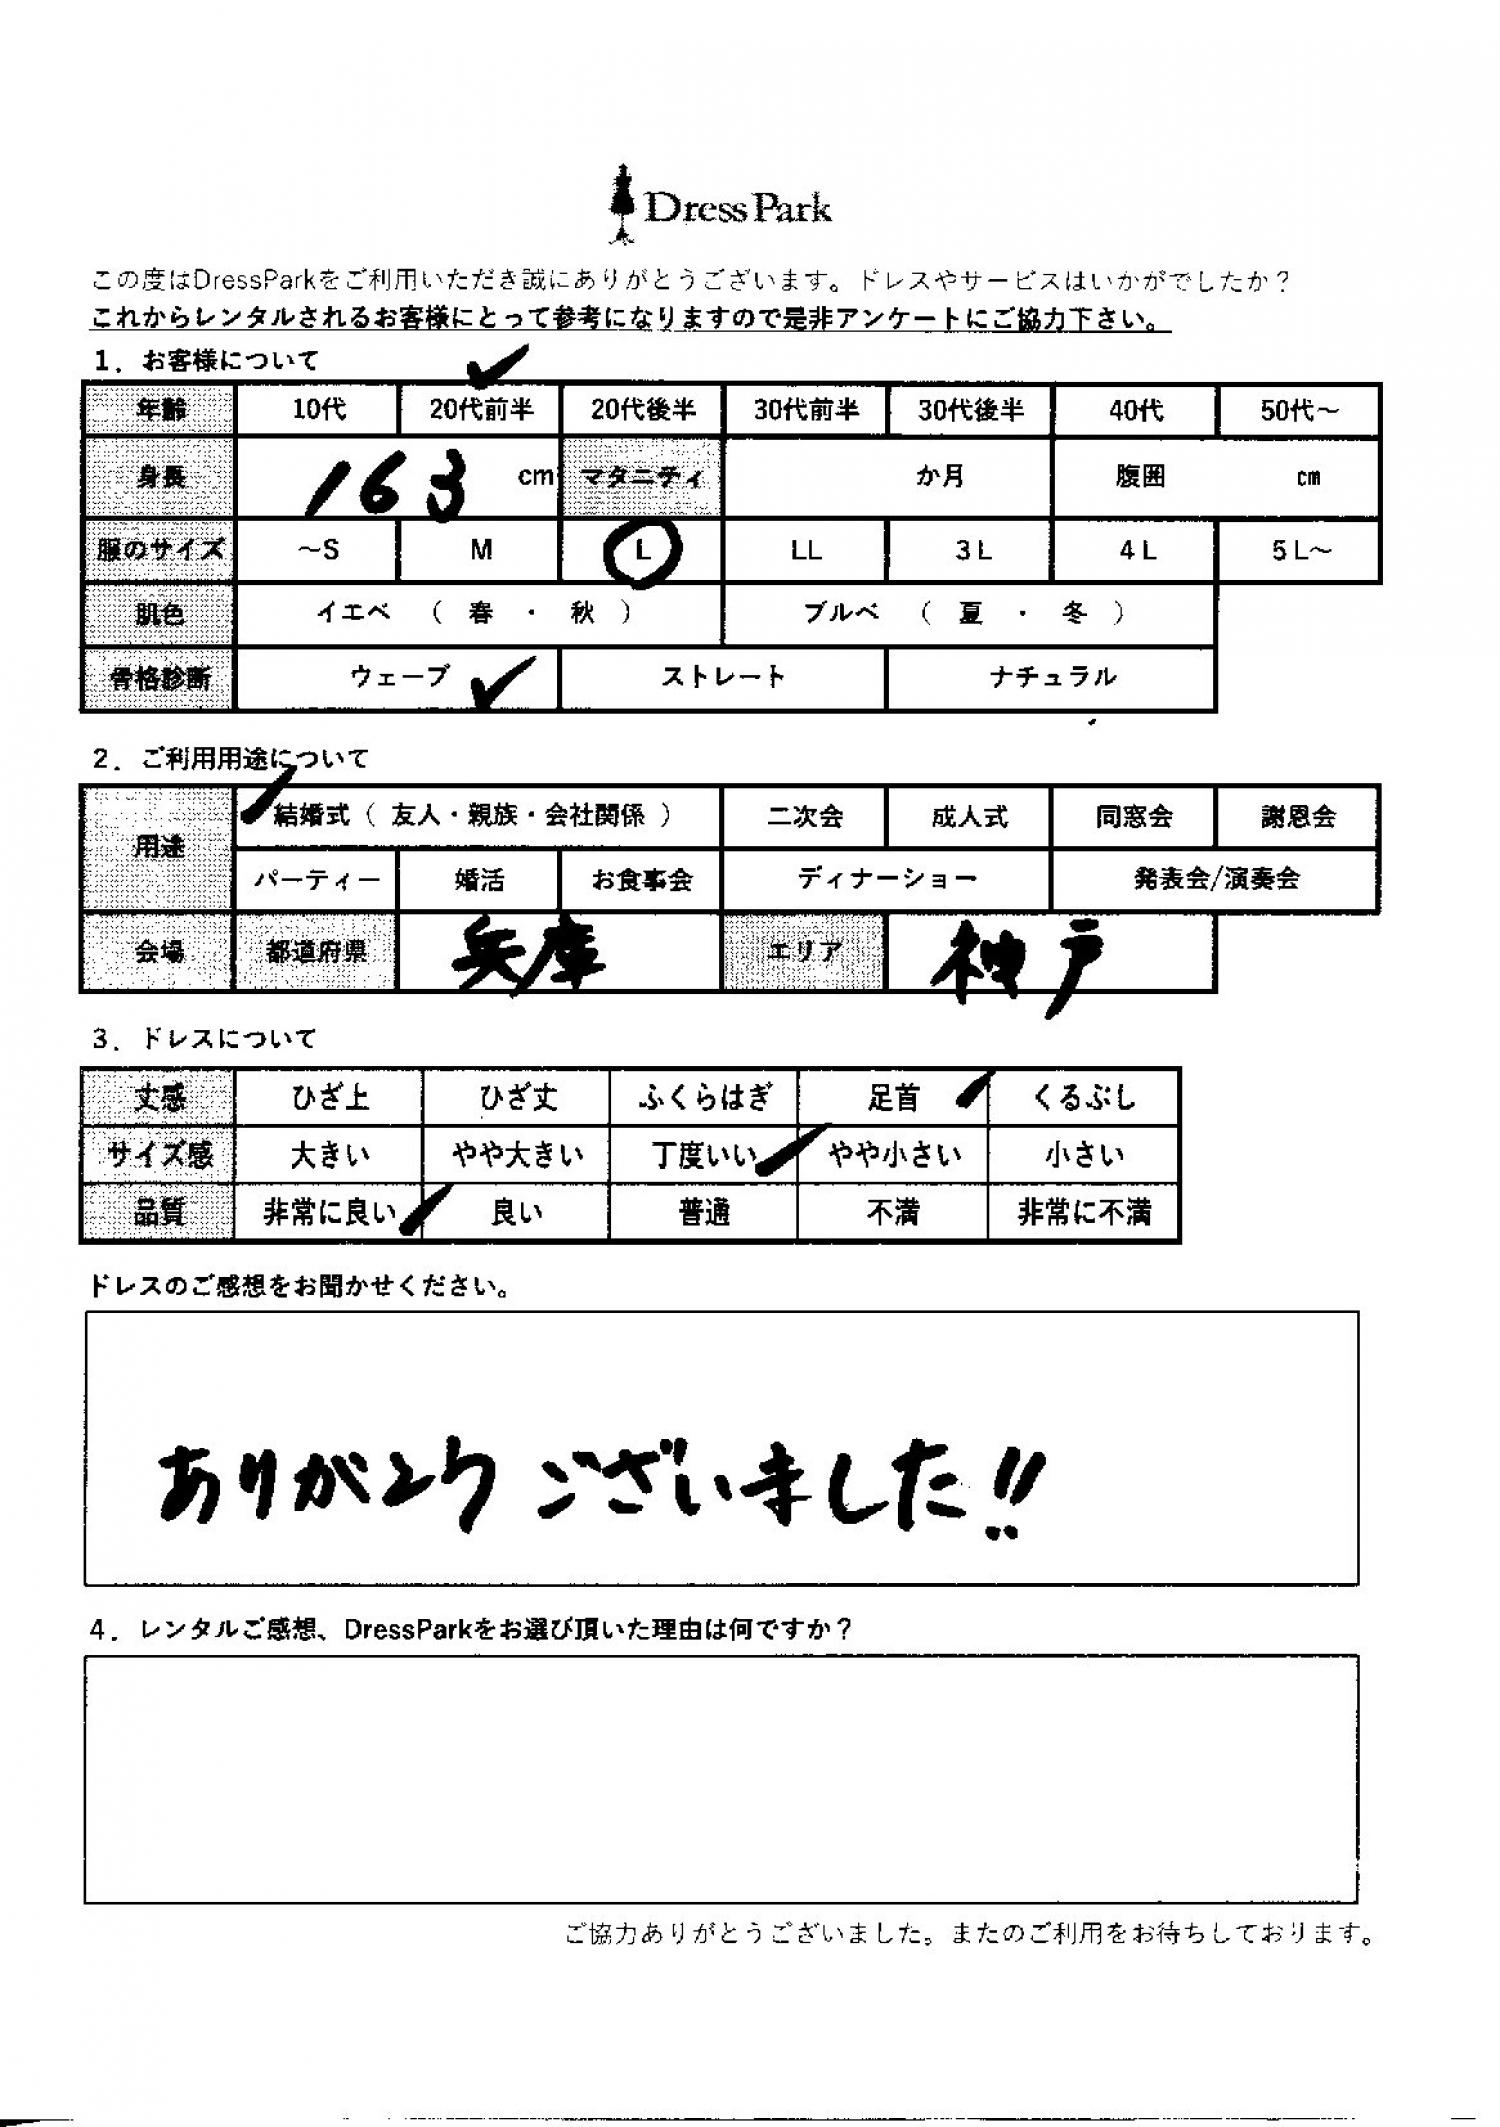 DressPark
この度はDressParkをご利用いただき誠にありがとうございます。ドレスやサービスはいかがでしたか？
これからレンタルされるお客様にとって参考になりますので是非アンケートにご協力下さい。
1．お客様について
年齢 10代 20代前半 20代後半 30代前半 30代後半 40代 50代～
身長 163 cm マタニティ か月 腹囲 cm
服のサイズ ～S M L LL 3L 4L 5L～
肌色 イエベ （ 春 ・ 秋 ） ブルベ （ 夏 ・ 冬 ）
骨格診断 ウェーブ ストレート ナチュラル
2．ご利用用途について
用途 結婚式（ 友人・親族・会社関係 ） 二次会 成人式 同窓会 謝恩会
パーティー 婚活 お食事会 ディナーショー 発表会/演奏会
会場 都道府県 兵庫 エリア 神戸
3．ドレスについて
丈感 ひざ上 ひざ丈 ふくらはぎ 足首 くるぶし
サイズ感 大きい やや大きい 丁度いい やや小さい 小さい
品質 非常に良い 良い 普通 不満 非常に不満
ドレスのご感想をお聞かせください。
ありがとうございました!!
4．レンタルご感想、DressParkをお選び頂いた理由は何ですか？
ご協力ありがとうございました。またのご利用をお待ちしております。